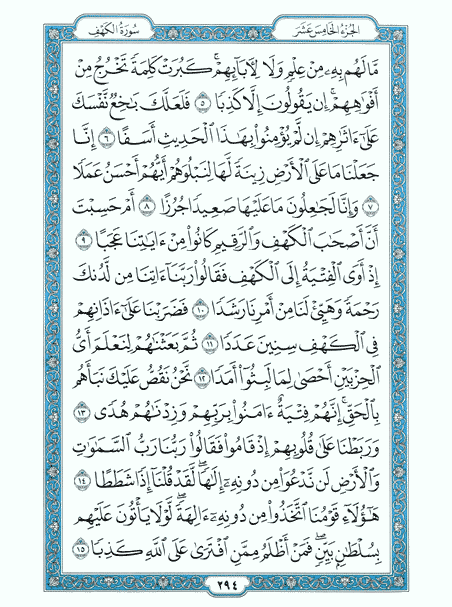 الجزء الخامس عشر
سورة الكهف
مَّا لَهُم بِهِۦ مِنْ عِلْمٍ وَلَا لِأَبَآئِهِمْ ۚ كَبُرَتْ كَلِمَةً تَخْرُجُ مِنْ
أَفْوَٰهِهِمْ ۚ إِن يَقُولُونَ إِلَّا كَذِبًا ٥ فَلَعَلَّكَ بَٰخِعٌ نَّفْسَكَ
عَلَىٰٓ ءَاثَٰرِهِمْ إِن لَّمْ يُؤْمِنُوا۟ بِهَٰذَا ٱلْحَدِيثِ أَسَفًا ٦ إِنَّا
جَعَلْنَا مَا عَلَى ٱلْأَرْضِ زِينَةً لَّهَا لِنَبْلُوَهُمْ أَيُّهُمْ أَحْسَنُ عَمَلًا
٧ وَإِنَّا لَجَٰعِلُونَ مَا عَلَيْهَا صَعِيدًا جُرُزًا ٨ أَمْ حَسِبْتَ
أَنَّ أَصْحَٰبَ ٱلْكَهْفِ وَٱلرَّقِيمِ كَانُوا۟ مِنْ ءَايَٰتِنَا عَجَبًا ٩
إِذْ أَوَى ٱلْفِتْيَةُ إِلَى ٱلْكَهْفِ فَقَالُوا۟ رَبَّنَآ ءَاتِنَا مِن لَّدُنكَ
رَحْمَةً وَهَيِّئْ لَنَا مِنْ أَمْرِنَا رَشَدًا ١٠ فَضَرَبْنَا عَلَىٰٓ ءَاذَانِهِمْ
فِى ٱلْكَهْفِ سِنِينَ عَدَدًا ١١ ثُمَّ بَعَثْنَٰهُمْ لِنَعْلَمَ أَىُّ
ٱلْحِزْبَيْنِ أَحْصَىٰ لِمَا لَبِثُوٓا۟ أَمَدًا ١٢ نَّحْنُ نَقُصُّ عَلَيْكَ نَبَأَهُم
بِٱلْحَقِّ ۚ إِنَّهُمْ فِتْيَةٌ ءَامَنُوا۟ بِرَبِّهِمْ وَزِدْنَٰهُمْ هُدًى ١٣
وَرَبَطْنَا عَلَىٰ قُلُوبِهِمْ إِذْ قَامُوا۟ فَقَالُوا۟ رَبُّنَا رَبُّ ٱلسَّمَٰوَٰتِ
وَٱلْأَرْضِ لَن نَّدْعُوَا۟ مِن دُونِهِۦٓ إِلَٰهًا ۖ لَّقَدْ قُلْنَآ إِذًا شَطَطًا ١٤
هَٰٓؤُلَآءِ قَوْمُنَا ٱتَّخَذُوا۟ مِن دُونِهِۦٓ ءَالِهَةً ۖ لَّوْلَا يَأْتُونَ عَلَيْهِم
بِسُلْطَٰنٍۭ بَيِّنٍ ۖ فَمَنْ أَظْلَمُ مِمَّنِ ٱفْتَرَىٰ عَلَى ٱللَّهِ كَذِبًا ١٥
٢٩٤